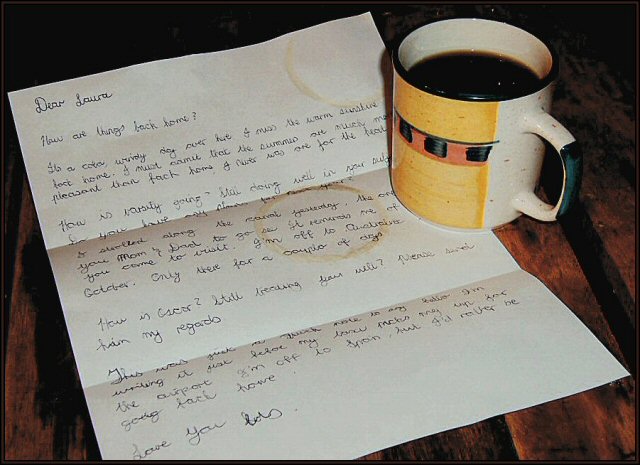 Dear Laura
How are things back home?
Its a cold, windy day over here. I miss the warm sunshine
back home. I must admit that the summers are much more
pleasant than back home. I never was one for the heat
How is varsity going? Still doing well in your
Do you have any plans for
I strolled along the canal yesterday, the one
you, Mom & Dad to go see. It reminds me of
you come to visit. I'm off to
October. Only there for a couple of days
How is Oscar? Still treating you well? Please send
him my regards
This was just a quick note to say hello. I'm
writing it just before my taxi picks me up for
the airport. I'm off to Spain, but I'd rather be
going back home.
Love You lots.